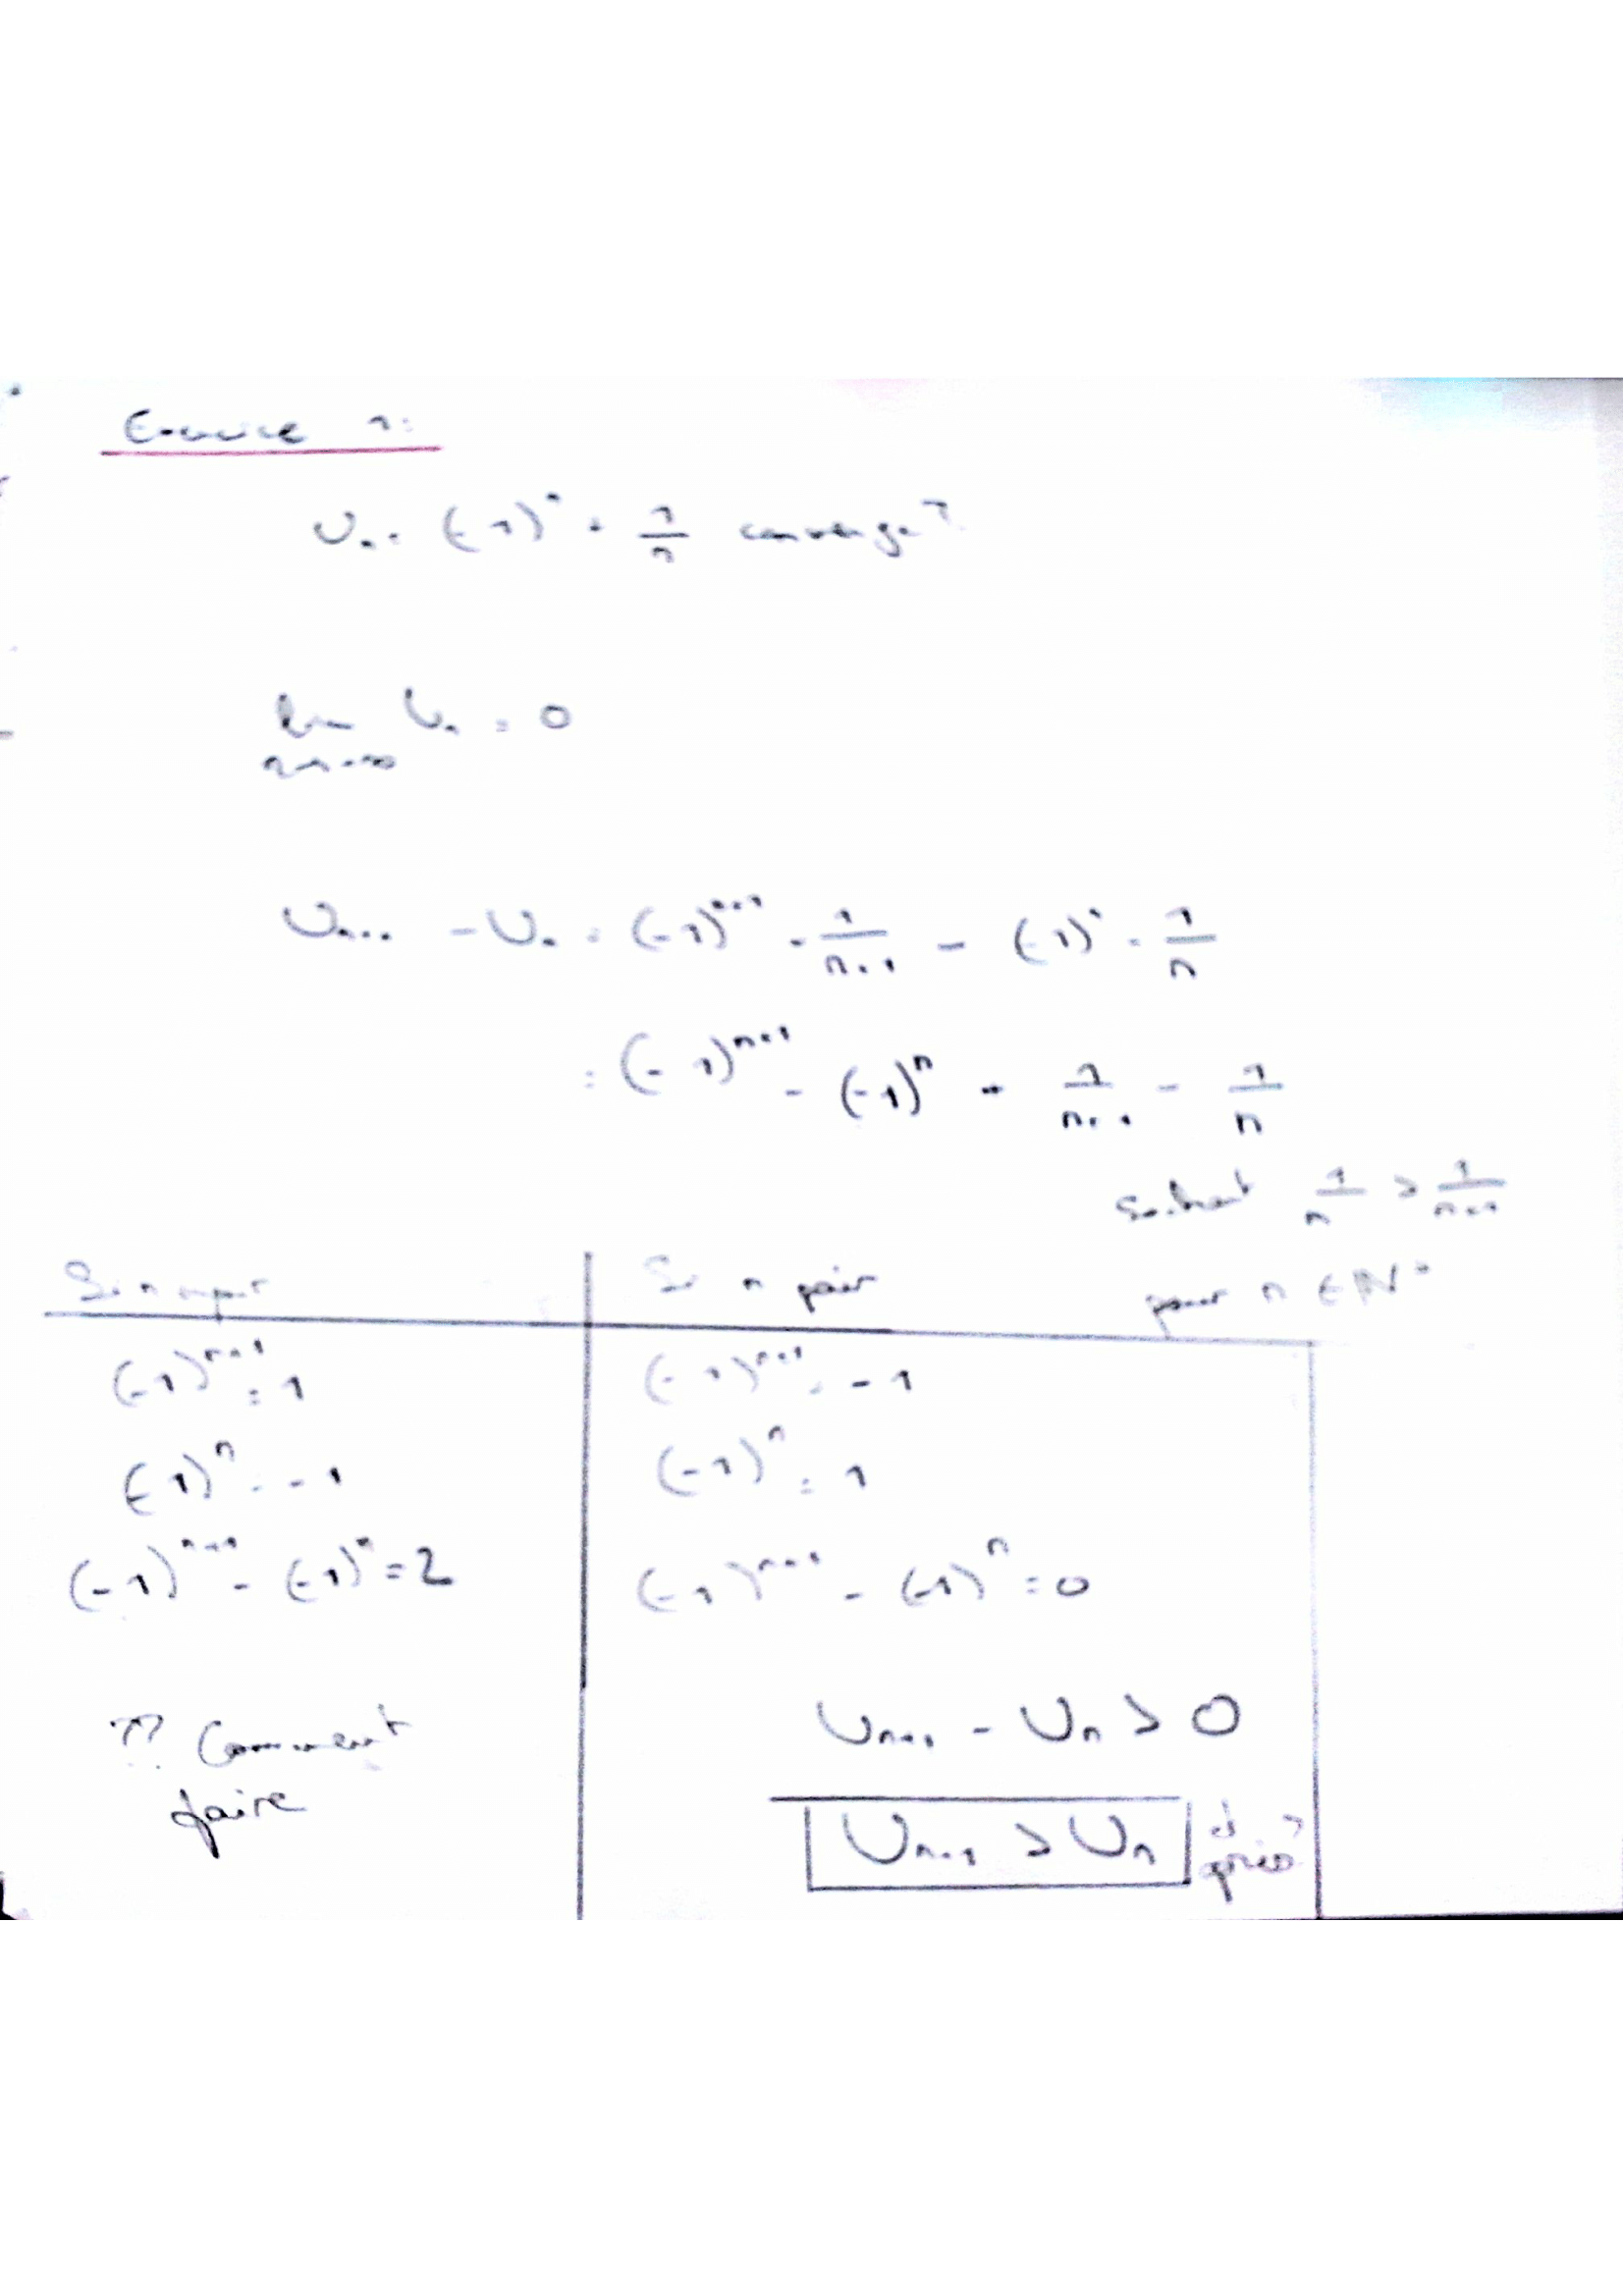 Exercice 1:
Un = (-1)^n + 1/n converge?
lim Un = 0
n→+∞
Un+1 - Un = (-1)^n+1 + 1/n+1 - (-1)^n - 1/n
= (-1)^n+1 - (-1)^n + 1/n+1 - 1/n
Sachant 1/n > 1/n+1
pour n ∈ N*
Si n impair
Si n pair
(-1)^n+1 = 1
(-1)^n+1 = -1
(-1)^n = -1
(-1)^n = 1
(-1)^n+1 - (-1)^n = 2
(-1)^n+1 - (-1)^n = 0
?? Comment
faire
Un+1 - Un > 0
Un+1 > Un
et
après?